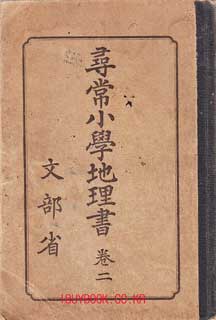 尋常小學地理書 卷二
文部省
IBUYBOOK.CO.KR